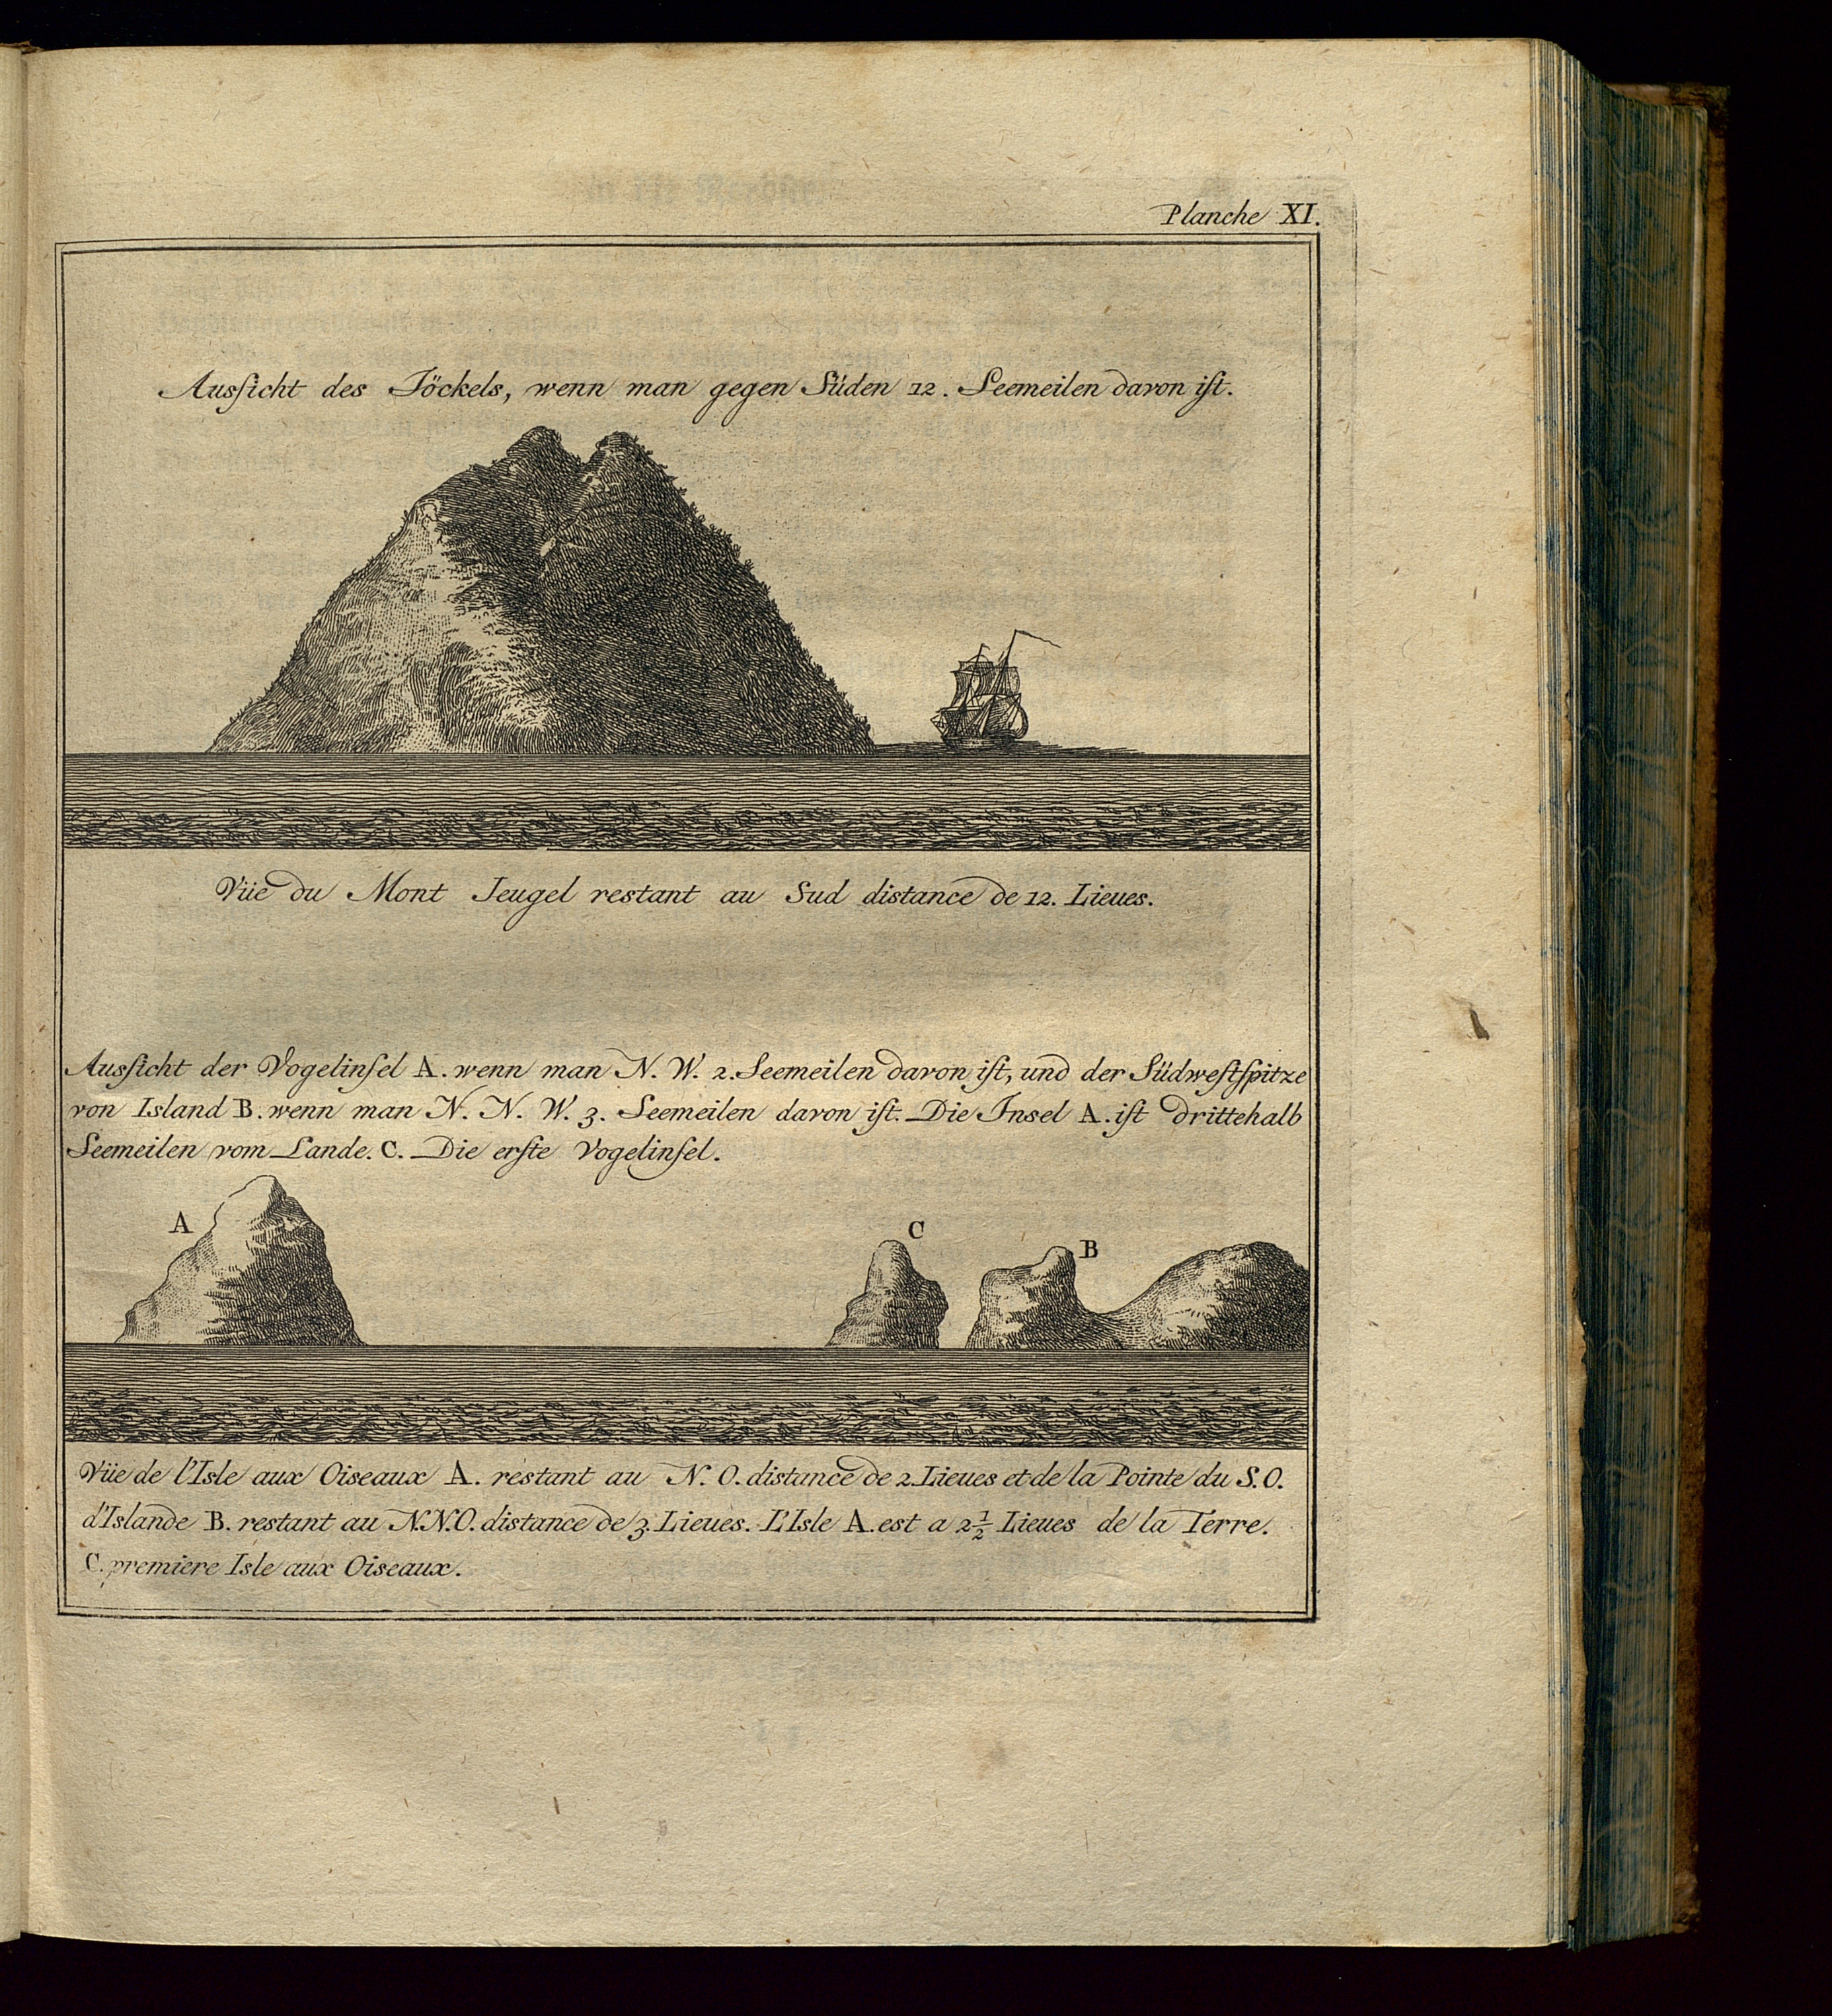 Planche XI.
Ausſicht des Jöckels, wenn man gegen Süden 12. Seemeilen davon iſt.
Vüe du Mont Jeugel restant au Sud distance de 12. Lieues.
Ausſicht der Vogelinſel A. wenn man N. W. 2. Seemeilen davon iſt, und der Südweſtſpitze
von Island B. wenn man N. N. W. 3. Seemeilen davon iſt. Die Inſel A. iſt drittehalb
Seemeilen vom Lande. C. Die erſte Vogelinſel.
A
C
B
Vüe de l'Isle aux Oiseaux A. restant au N. O. distance de 2. Lieues et de la Pointe du S. O.
d'Islande B. restant au N.N.O. distance de 3. Lieues. L'Isle A. est a 2 1/2 Lieues de la Terre.
C. premiere Isle aux Oiseaux.